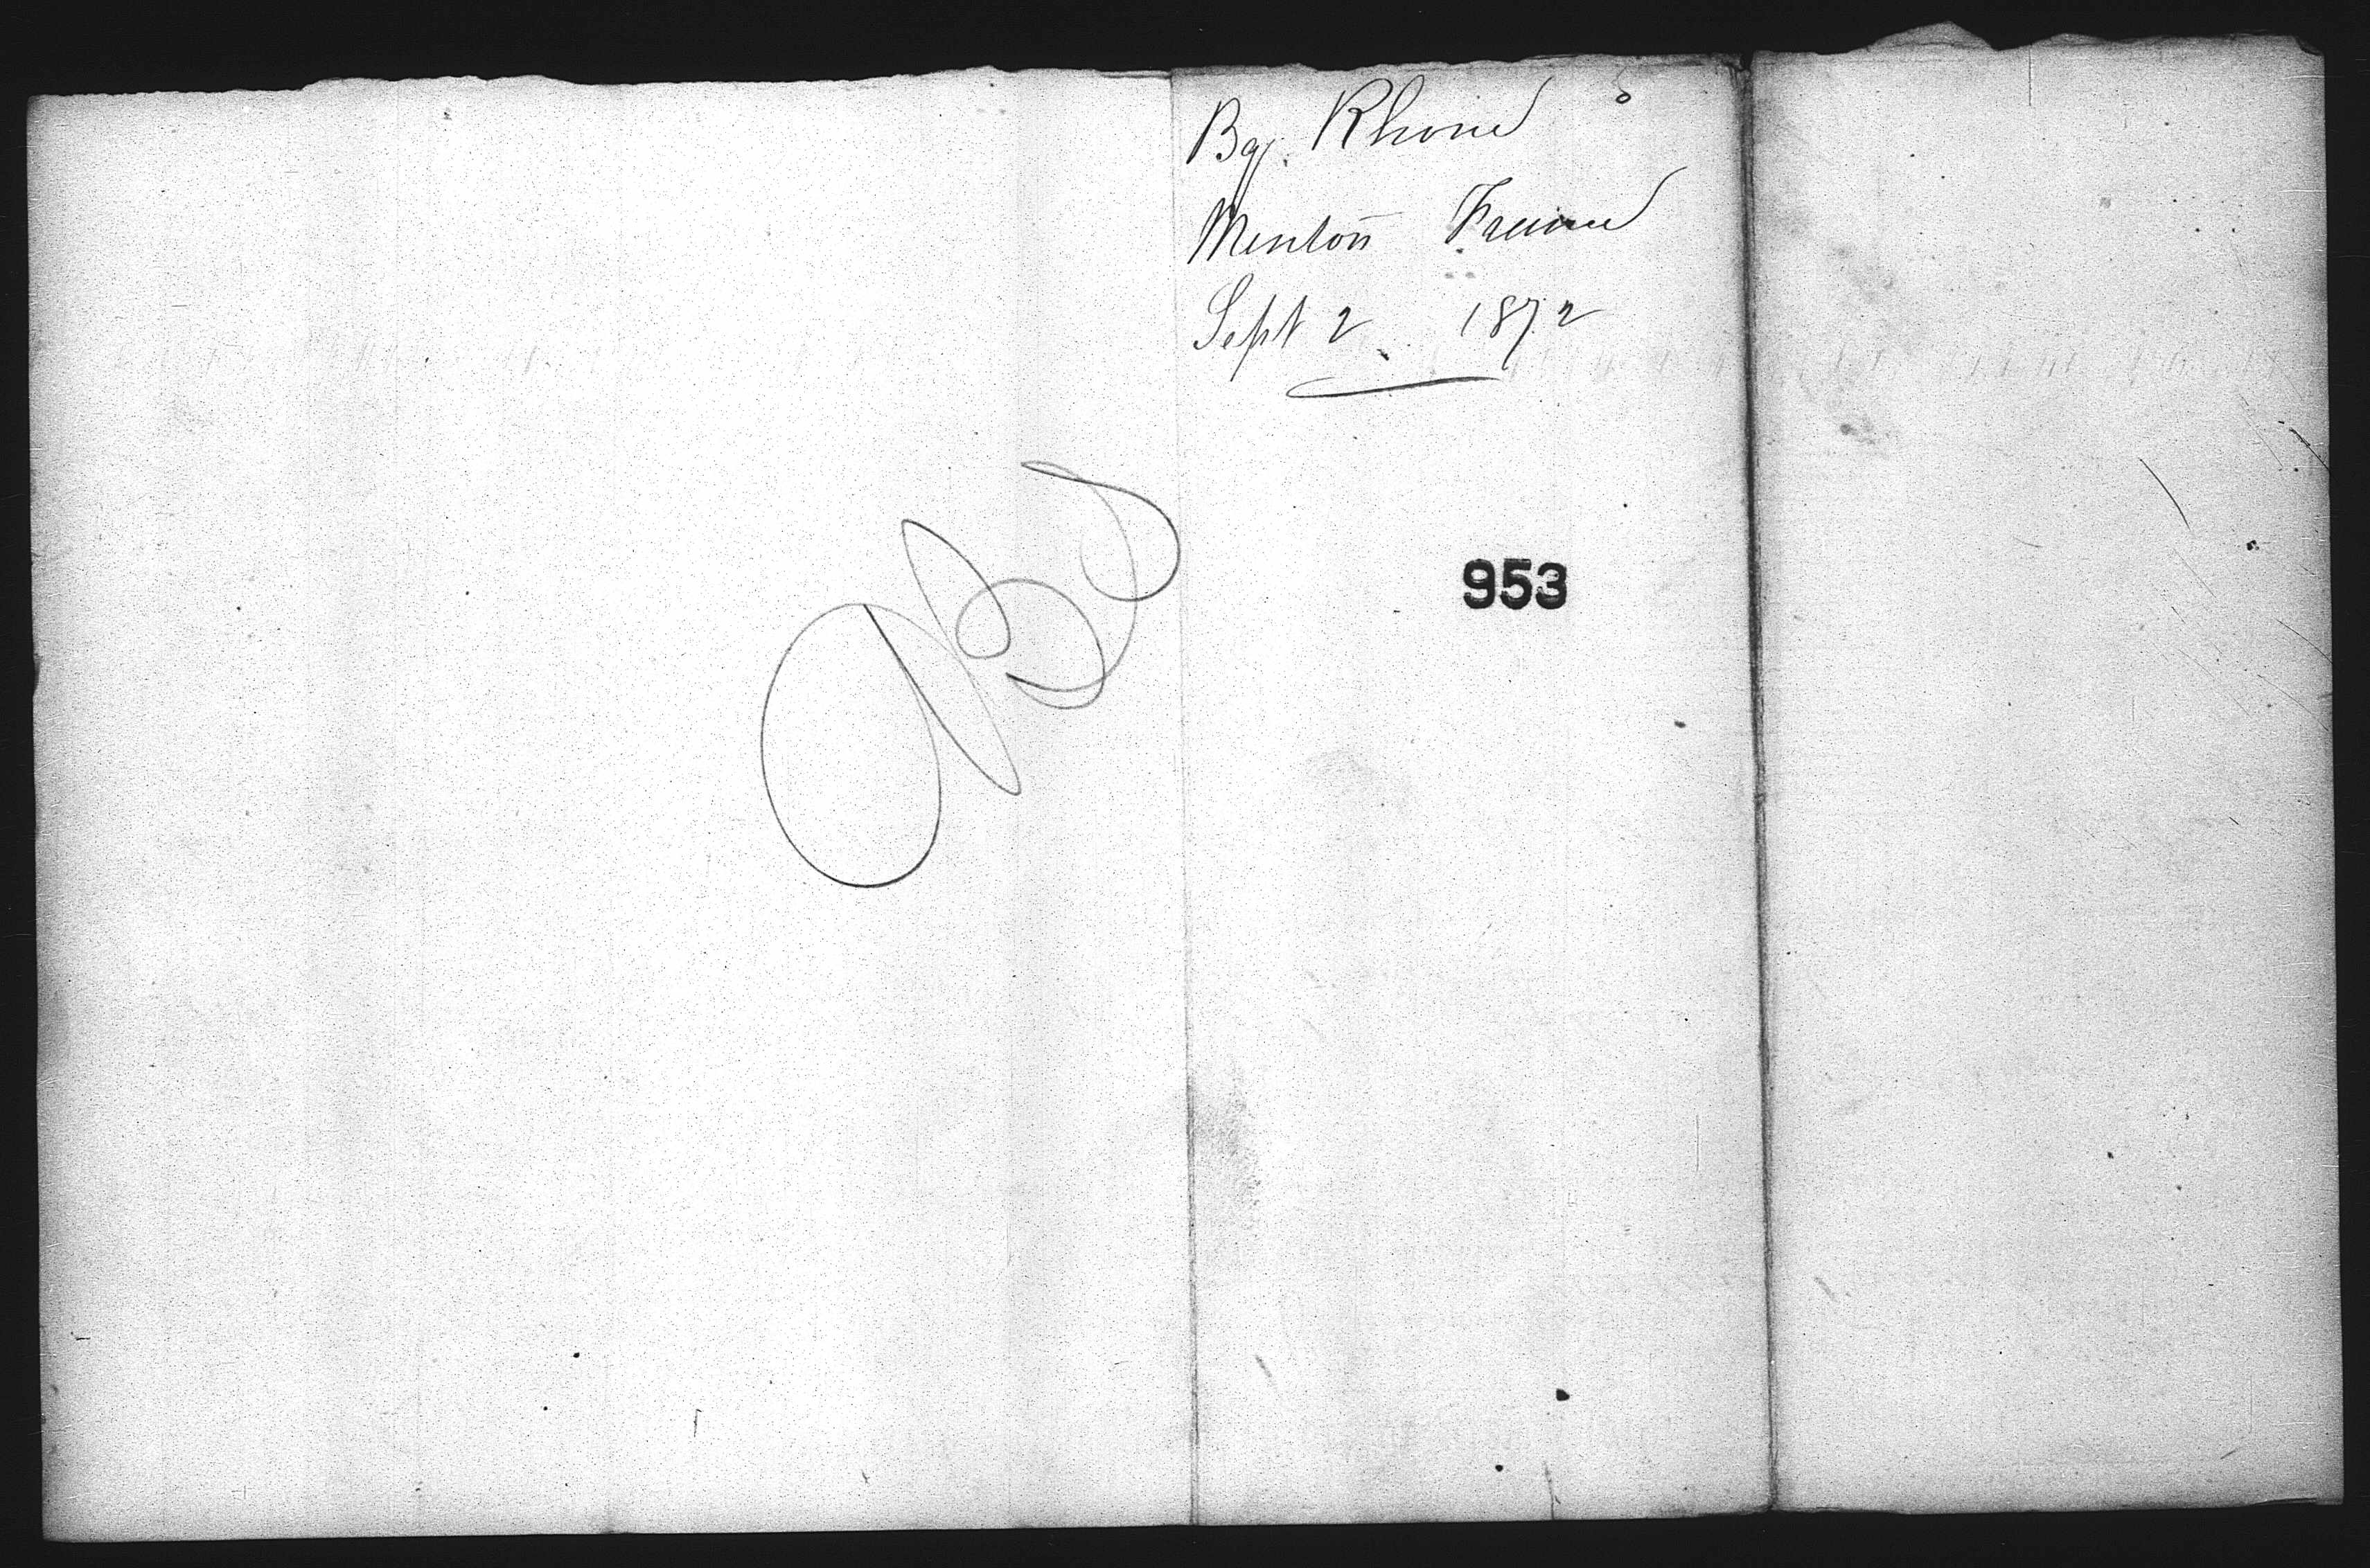 Bq. Rhone
Menton France
Sept 2 1872
953